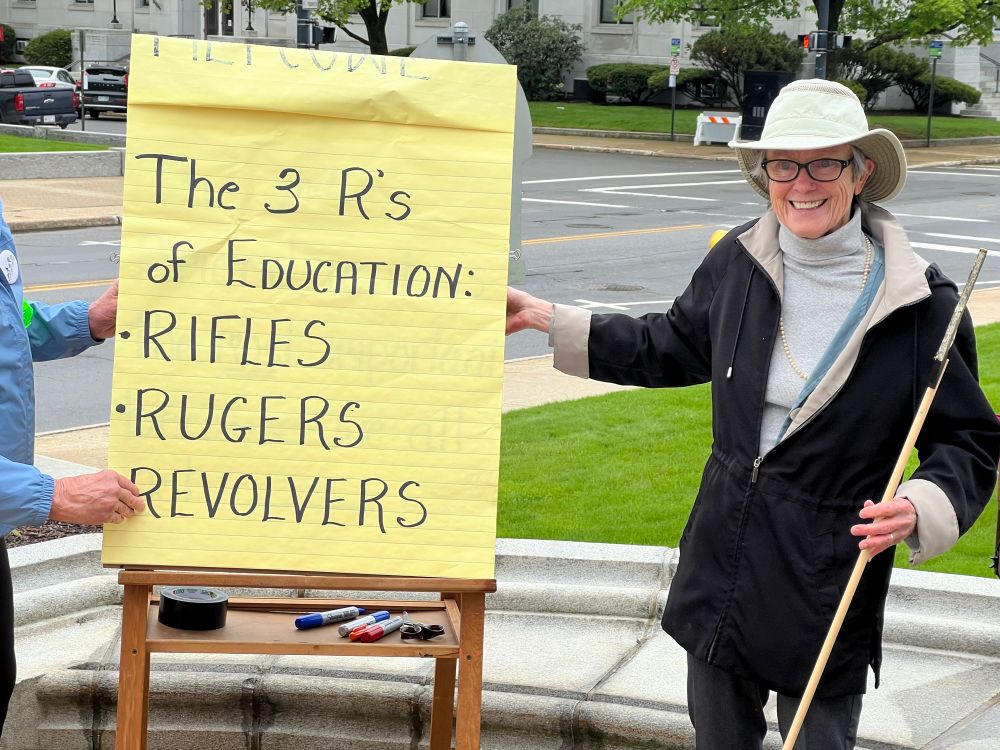 The 3 R's
of EDUCATION:
• RIFLES
• RUGERS
REVOLVERS